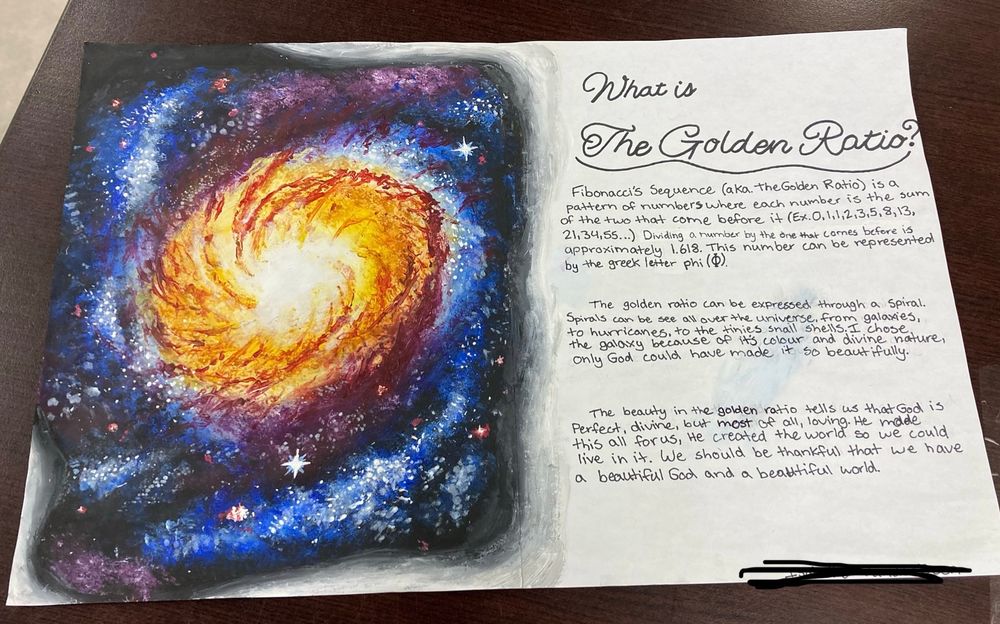 What is
The Golden Ratio?
Fibonacci's Sequence (aka. The Golden Ratio) is a
pattern of numbers where each number is the sum
of the two that come before it (Ex. 0,1,1,2,3,5,8,13,
21,34,55...) Dividing a number by the one that comes before is
approximately 1.618. This number can be represented
by the greek letter phi (Φ).
The golden ratio can be expressed through a spiral.
Spirals can be see all over the universe, from galaxies,
to hurricanes, to the tinies small shells. I chose
the galaxy because of it's colour and divine nature,
only God could have made it so beautifully.
The beauty in the golden ratio tells us that God is
Perfect, divine, but most of all, loving. He made
this all for us, He created the world so we could
live in it. We should be thankful that we have
a beautiful God and a beautiful world.